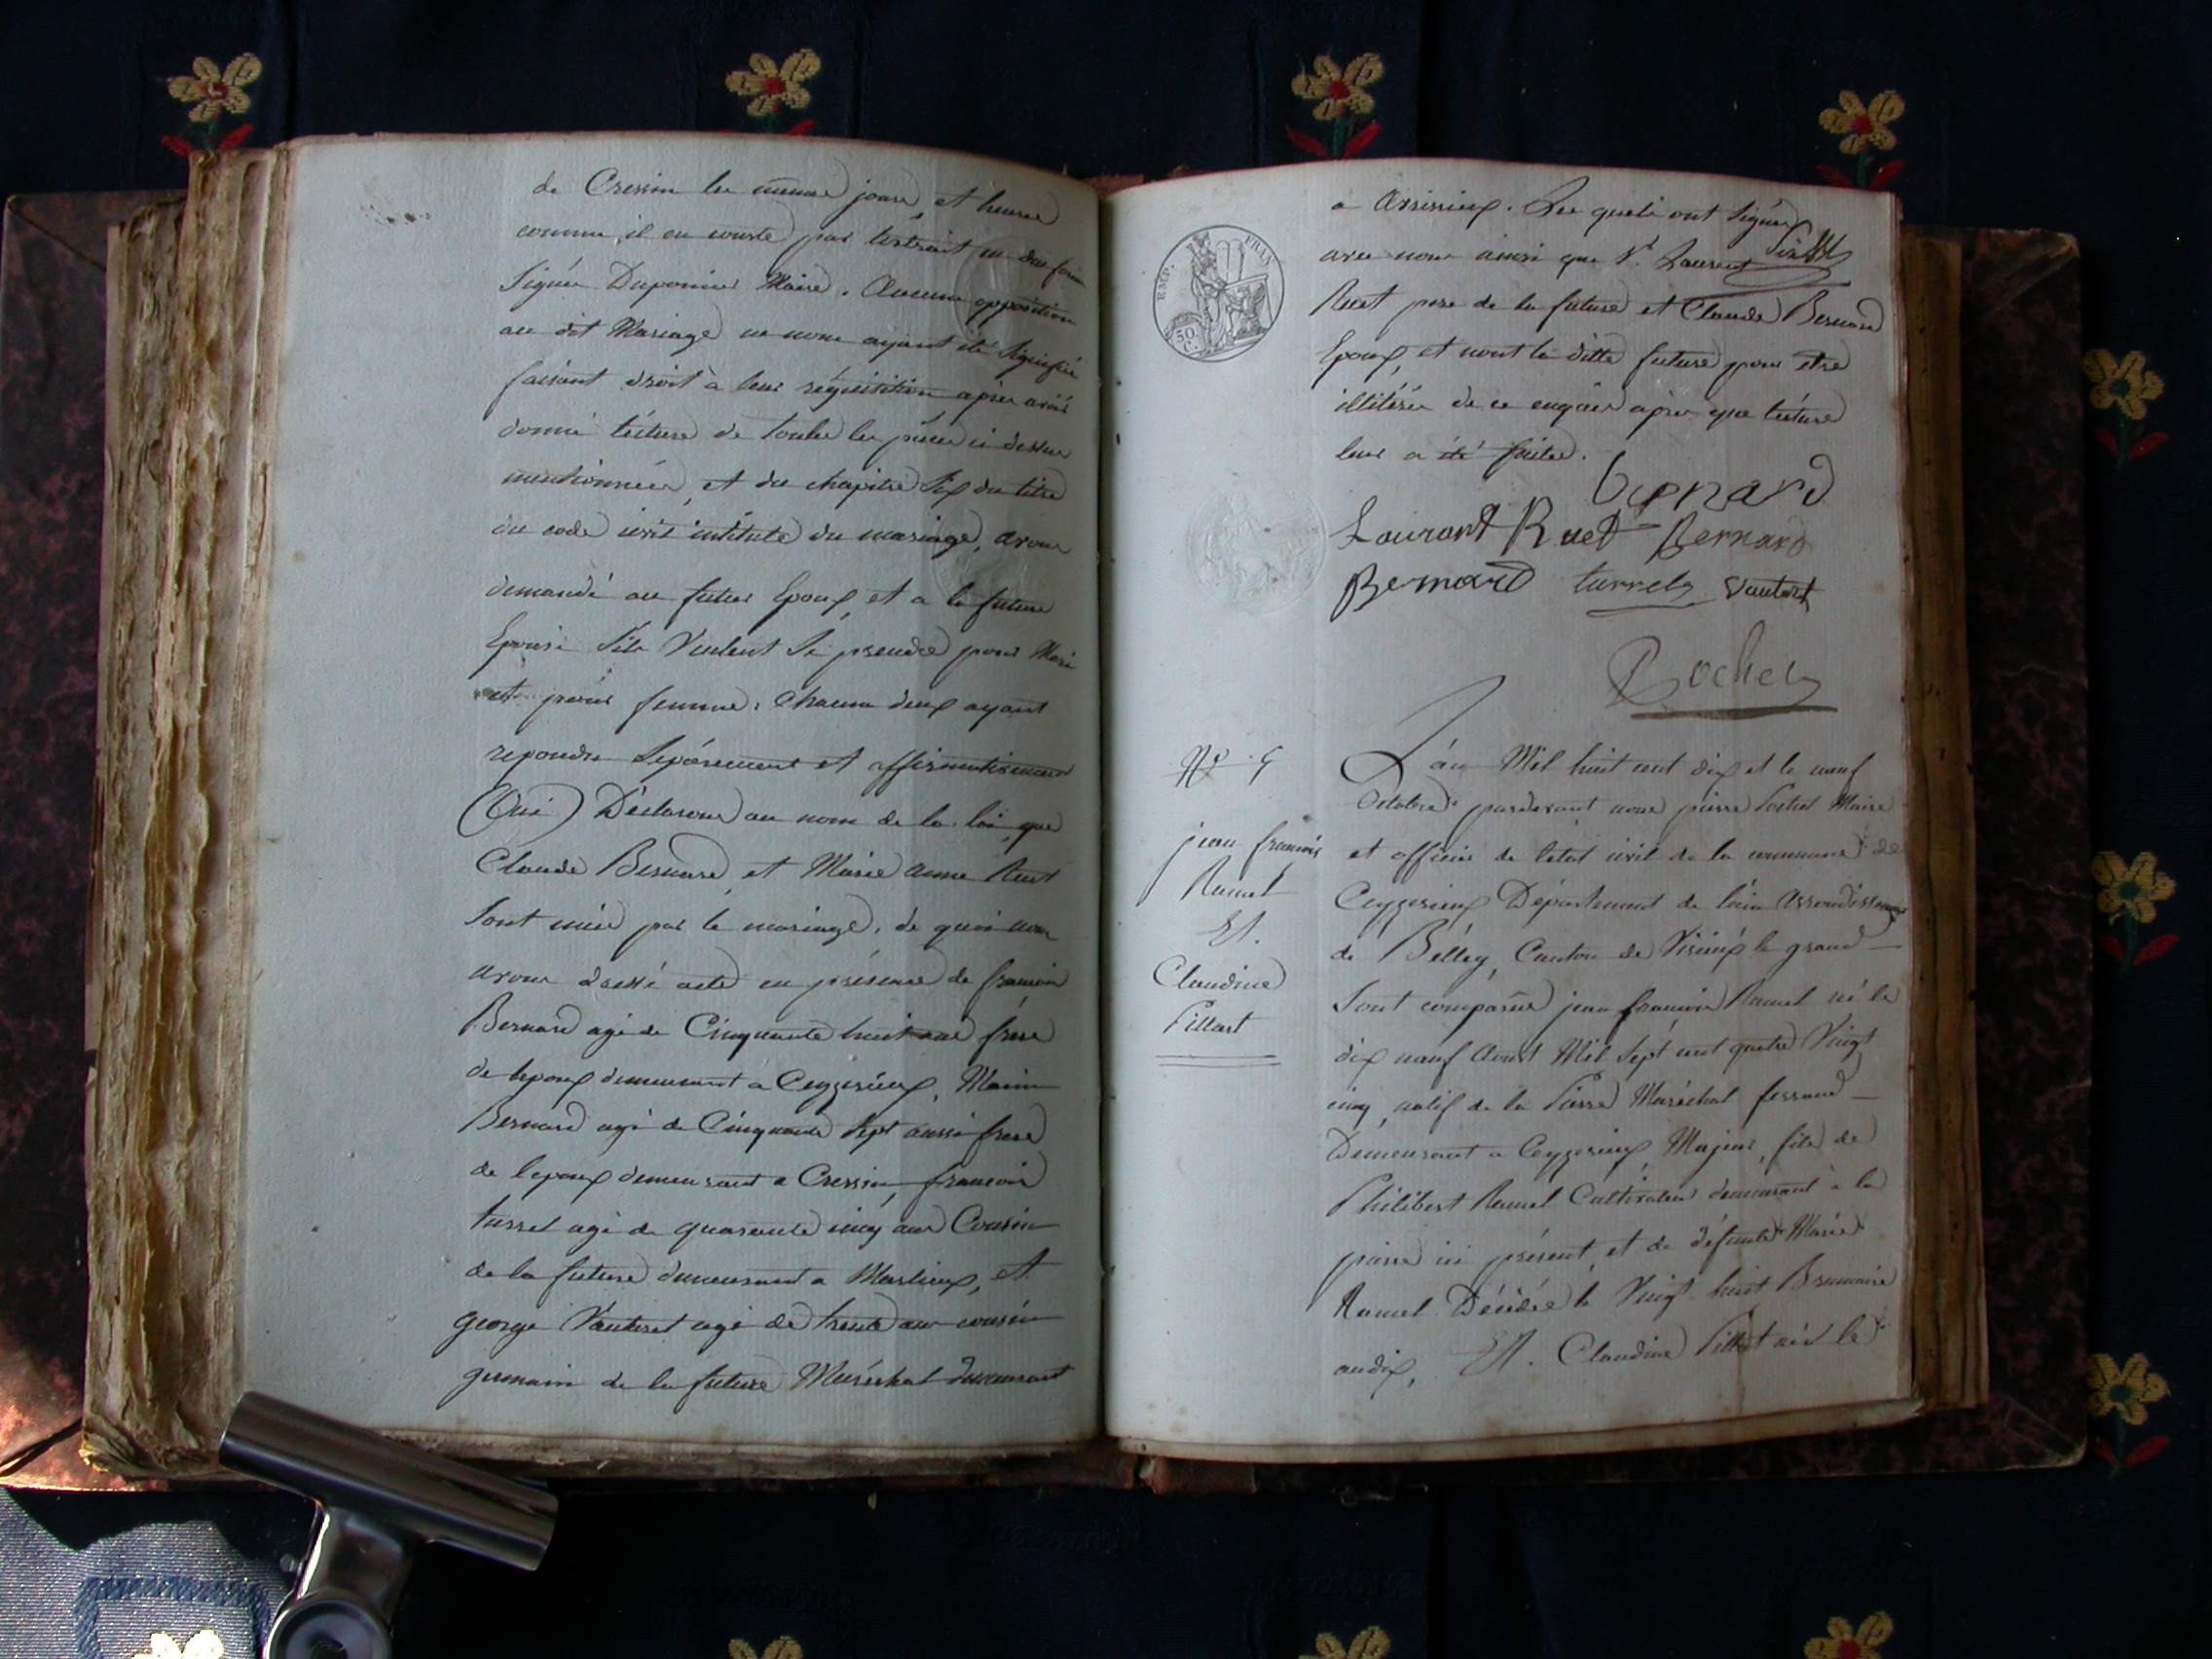 de Cressin les mêmes jours, et heures
comme il en conste par l'extrait en due forme
Signée Duponnier Maire. Aucune opposition
au dit Mariage ne nous ayant été Signifiée
faisant droit à leur réquisition après avoir
donné lécture de toutes les pièces ci dessus
mentionnées, et du chapitre Six du titre
du code civil intitulé du mariage, avons
demandé au futur Epoux, et a la future
Epouse S'ils Veulent Se prendre pour Mari
et pour femme; Chacun deux ayant
repondu Séparement et affirmativement
(Oui) Déclarons au nom de la loi, que
Claude Bernard, et Marie anne Ruet
Sont unis par le mariage, de quoi nous
avons dressé acte en présence de françois
Bernard agé de Cinquante huit ans frère
de lepoux demeurant a Ceyzerieux, Marin
Bernard agé de Cinquante Sept aussi frere
de l'epoux demeurant a Cressin, françois
turrel agé de quarante cinq ans Cousin
de la future demeurant a Marlieux, et
george Vauteret agé de trente ans cousin
germain de la future Maréchal demeurant
EMP. FRAN.
50 C.
a Avissieux. Les quels ont Signés
avec nous ainsi que Sr. Laurent
Ruet pere de la future et Claude Bernard
Epoux, et nont la ditte future pour etre
illitérée de ce enquis après que lécture
leur a été faitte.
Bernard
Laurent Ruet Bernard
Bernard turrel Vauteret
Rochet
No. 5
jean françois
Ramel
Et.
Claudine
Pillast
L'an Mil huit cent dix et le neuf
Octobre pardevant nous pierre Maire
et officier de l'état civil de la commune de
Ceyzerieux Département de lain arrondissement
de Bélley, Canton de Virieux le grand
Sont comparus jean françois Ramel né le
dix neuf Aoust Mil Sept cent quatre Vingt
cinq natif de la Maréchal ferrand
Demeurant a Ceyzerieux Majeur, fils de
Philibert Ramel Cultivateur demeurant à la
ici présent, et de défunte Marie
Ramel Décédée le Vingt huit Brumaire
an dix, Et. Claudine Pillast née le